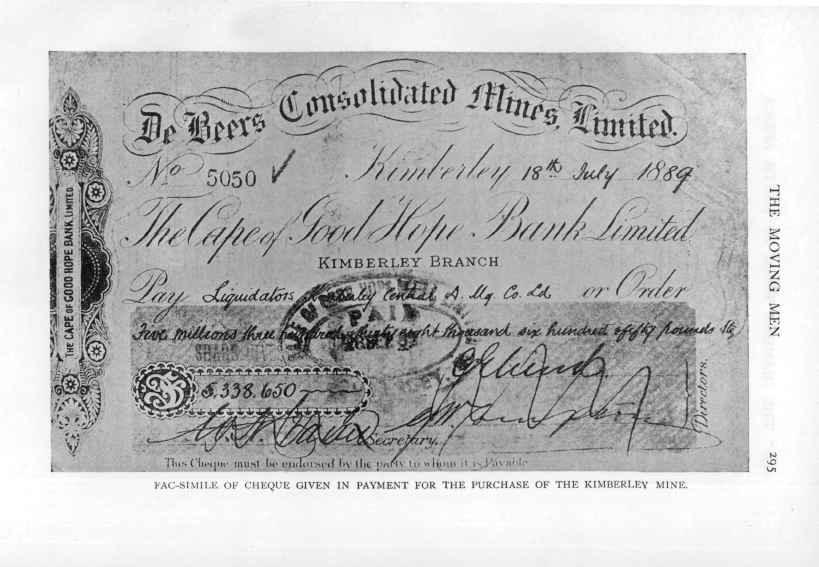 De Beers Consolidated Mines, Limited.
No 5050 ✓ Kimberley 18th July 1889
The Cape of Good Hope Bank Limited
KIMBERLEY BRANCH
Pay Liquidators Kimberley Central D. Mg. Co. Ld or Order
Five millions three hundred & thirty eight thousand six hundred & fifty pounds Stg
PAID
£5,338,650
Secretary.
Directors.
This Cheque must be endorsed by the party to whom it is Payable
THE CAPE OF GOOD HOPE BANK, LIMITED
FAC-SIMILE OF CHEQUE GIVEN IN PAYMENT FOR THE PURCHASE OF THE KIMBERLEY MINE.
THE MOVING MEN
295